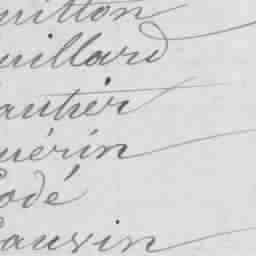 uitton
uillard
autier
uérin
odé
auvin